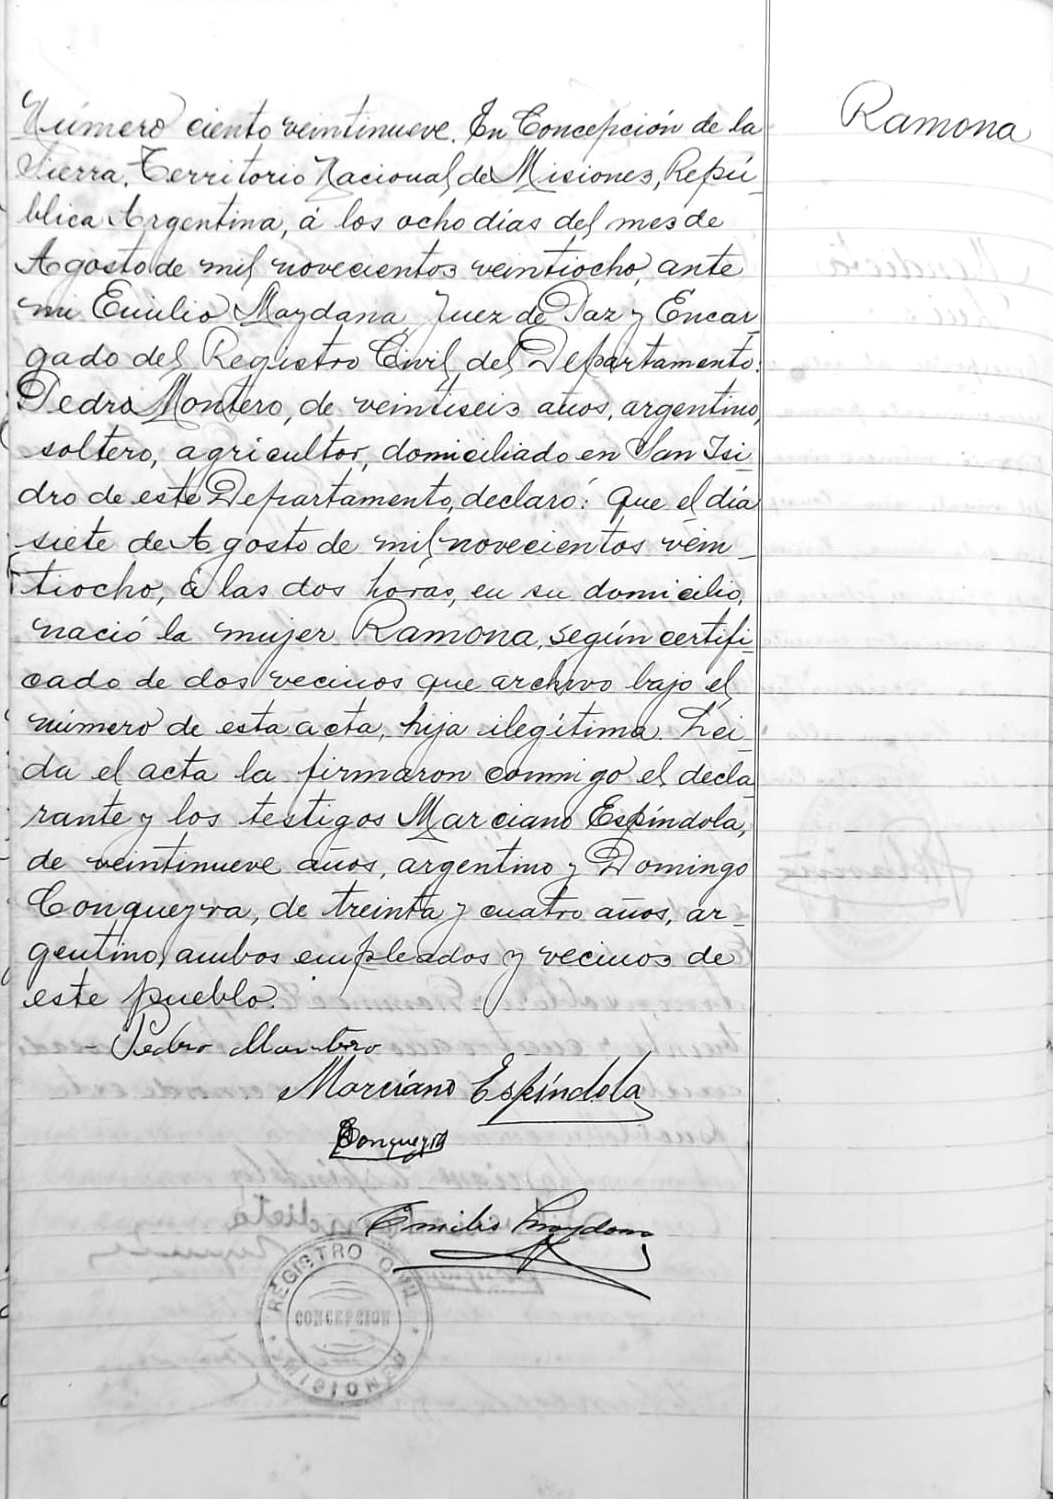 Ramona
Número ciento veintinueve. En Concepción de la
Sierra, Territorio Nacional de Misiones, Repú-
blica Argentina, á los ocho días del mes de
Agosto de mil novecientos veintiocho, ante
mi Emilio Maydana, Juez de Paz y Encar-
gado del Registro Civil del Departamento:
Pedro Montero, de veintiseis años, argentino,
soltero, agricultor, domiciliado en San Isi-
dro de este Departamento, declaró: Que el día
siete de Agosto de mil novecientos vein-
tiocho, á las dos horas, en su domicilio,
nació la mujer Ramona, según certifi-
cado de dos vecinos que archivo bajo el
número de esta acta, hija ilegítima. Leí-
da el acta la firmaron conmigo el decla-
rante y los testigos Marciano Espíndola,
de veintinueve años, argentino y Domingo
Conqueyra, de treinta y cuatro años, ar-
gentino, ambos empleados y vecinos de
este pueblo.
- Pedro Montero
Marciano Espíndola
Conqueyra
Emilio Maydana
REGISTRO CIVIL
CONCEPCION
MISIONES